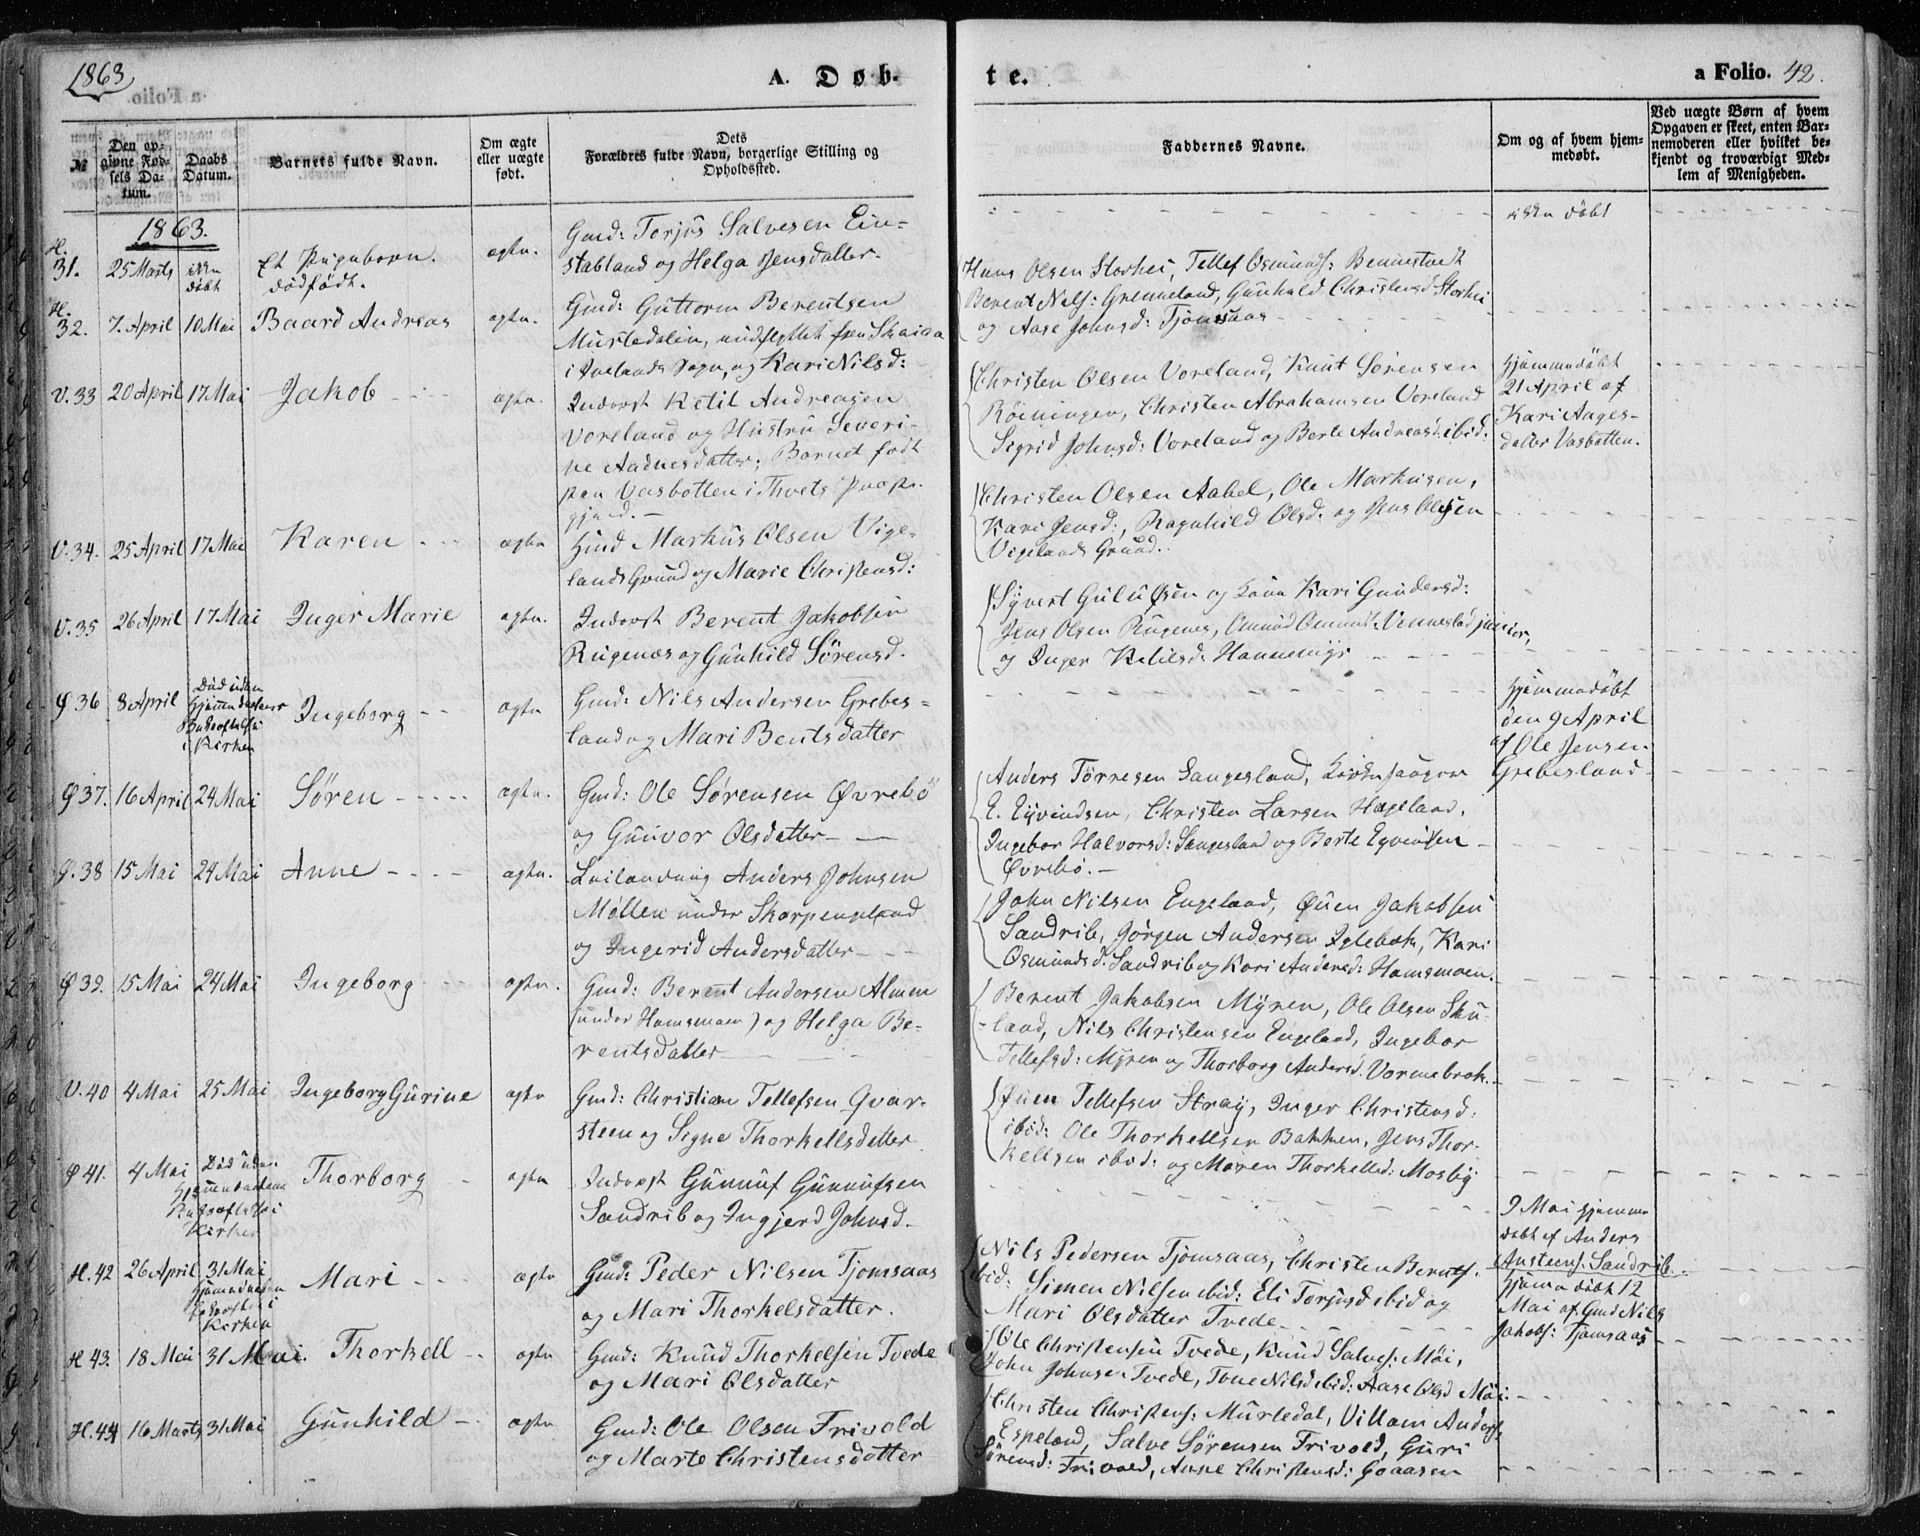 1863
A. Døb-
te.
a Folio. 42.
№
Den opgivne Fødsels Datum.
Daabs Datum.
Barnets fulde Navn.
Om ægte eller uægte født.
Dets
Forældres fulde Navn, borgerlige Stilling og Opholdssted.
Faddernes Navne.
Om og af hvem hjemmedøbt.
Ved uægte Børn af hvem
Opgaven er skeet, enten Bar-
nemoderen eller hvilket be-
kjendt og troværdigt Med-
lem af Menigheden.
1863.
H. 31. 25 Marts ikke døbt
Et Pigebarn dødfødt.
ægte.
Gmd: Torjus Salvesen Ein-
stabland og Helga Jensdatter.
ikke døbt
H. 32. 7. April 10 Mai Baard Andreas ægte.
Gmd: Guttorm Berentsen
Murtedalen, udflyttet fra Skaiaa
i Ivelands Sogn, og Kari Nilsd:
Hans Olsen Storhei, Tellef Osmunds: Bennestvedt
Berent Nels: Grenneland, Gunhild Christensd Storhei
og Aase Johnsd: Tjomsaas
V. 33 20 April 17 Mai Jakob ægte.
Inderst Ketil Andreasen
Voreland og Hustru Severi-
ne Aadnesdatter; Barnet født
paa Vasbotten i Tveits Præste-
gjæld.
Christen Olsen Voreland, Knut Sørensen
Røiningen, Christen Abrahamsen Voreland
Sigrid Johnsd: Voreland og Berte Andreasd. ibid.
hjemmedøbt
21 April af
Kari Aages-
datter Vasbotten.
V. 34. 25 April 17 Mai Karen ægte
Gmd Markus Olsen Vige-
lands Grund og Marie Christensd:
Christen Olsen Aabel, Ole Markusen,
Kari Jensd:, Ragnhild Olsd. og Jens Olsen
Vigelands Grund.
V. 35 26 April 17 Mai Inger Marie ægte.
Inderst Berent Jakobsen
Rugenæs og Gunhild Sørensd.
Syvert Gulufsen og Kone Kari Gundersd:
Jens Olsen Rugenes, Omund Omunds. Vennesland junior,
og Inger Ketilsd: Hommen
Ø 36 8 April Død uden
Hjemmedaabens
Bekræftelse
i Kirken
Ingeborg ægte
Gmd: Nils Andersen Grebes-
land og Mari Bentsdatter
hjemmedøbt
den 9 April
af Ole Jensen
Grebesland
Ø 37. 16 April 24 Mai Søren ægte.
Gmd: Ole Sørensen Øvrebø
og Gunvor Olsdatter
Anders Tørresen Sangesland, Kirkesanger
E. Eyvindsen, Christen Larsen Hægeland,
Ingebor Halvorsd: Sangesland og Berte Eyvindsen
Øvrebø.
Ø. 38 15 Mai 24 Mai Anne ægte.
Leilænding Anders Johnsen
Møllen under Skarpengland
og Ingerid Andersdatter
John Nilsen Engeland, Øuen Jakobsen
Sandrib, Jørgen Andersen Iglebæk, Kari
Osmundsd. Sandrib og Kari Andersd: Homsmoen.
Ø 39. 15 Mai 24 Mai Ingeborg ægte.
Gmd: Berent Andersen Almen
(under Homsmoen) og Helga Be-
rentsdatter
Berent Jakobsen Myren, Ole Olsen Sku-
land, Nils Christensen Engeland, Ingebor
Tellefsd: Myren og Thorborg Andersd. Vormebrok.
V. 40 4 Mai 25 Mai Ingeborg Gurine ægte
Gmd: Christian Tellefsen Qvar-
steen og Signe Thorkellsdatter
Øuen Tellefsen Stray, Inger Christensd.
ibid: Ole Thorkellsen Bakken, Jens Thor-
kellsen ibid: og Maren Thorkellsd: Mosby
Ø 41. 4 Mai Død uden
Hjemmedaabens
Bekræftelse i
Kirken
Thorborg ægte
Inderst Gunnuf Gunnufsen
Sandrib og Ingjerd Johnsd.
9 Mai hjemme
døbt af Anders
Austeens: Sandrib
H. 42 26 April 31 Mai
hjemmedaaben
bekræftet i
Kirken
Mari ægte
Gmd: Peder Nilsen Tjomsaas
og Mari Thorkelsdatter.
Nils Pedersen Tjomsaas, Christen Bernts.
ibid: Simen Nilsen ibid: Eli Torjusd ibid og
Mari Olsdatter Tvede
hjemmedøbt 12
Mai af Gmd Nils
Jakobs: Tjomsaas
H 43. 18 Mai 31 Mai. Thorkell ægte
Gmd: Knud Thorkelsen Tvede
og Mari Olsdatter
Ole Christensen Tvede, Knud Salves: Møi,
John Johnsen Tvede, Tone Nilsd ibid: Aase Olsd Møi.
H. 44 16 Marts 31 Mai Gunhild ægte
Gmd: Ole Olsen Frivold
og Marte Christensdatter
Christen Christens: Murtedal, Villam Anders.
Espeland, Salve Sørensen Frivold, Guri
Sørensd: Frivold, Anne Christensd: Goaasen